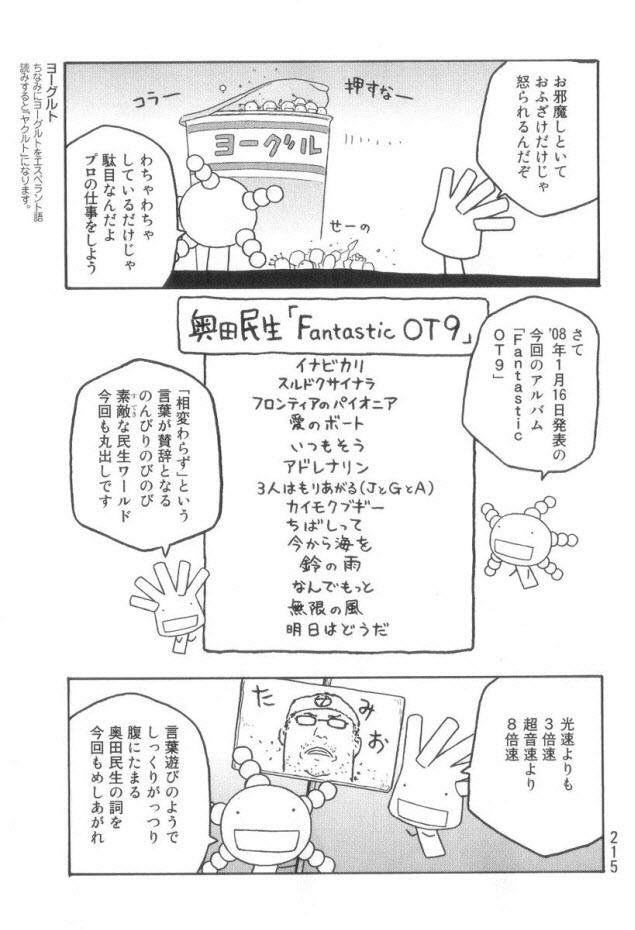 お邪魔しといて
おふざけだけじゃ
怒られるんだぞ
押すなー
コラー
ヨーグルル
せーの
わちゃわちゃ
しているだけじゃ
駄目なんだよ
プロの仕事をしよう
ヨーグルト
ちなみにヨーグルトをエスペラント語
読みすると「ヤクルト」になります。
さて
'08年1月16日発表の
今回のアルバム
「Fantastic
OT9」
奥田民生「Fantastic OT9」
イナビカリ
スルドクサイナラ
フロンティアのパイオニア
愛のボート
いつもそう
アドレナリン
3人はもりあがる(JとGとA)
カイモクブギー
ちばしって
今から海を
鈴の雨
なんでもっと
無限の風
明日はどうだ
「相変わらず」という
言葉が賛辞となる
のんびりのびのび
素敵な民生ワールド
すてき
今回も丸出しです
光速よりも
3倍速
超音速より
8倍速
たみお
言葉遊びのようで
しっくりがっつり
腹にたまる
奥田民生の詞を
今回もめしあがれ
215